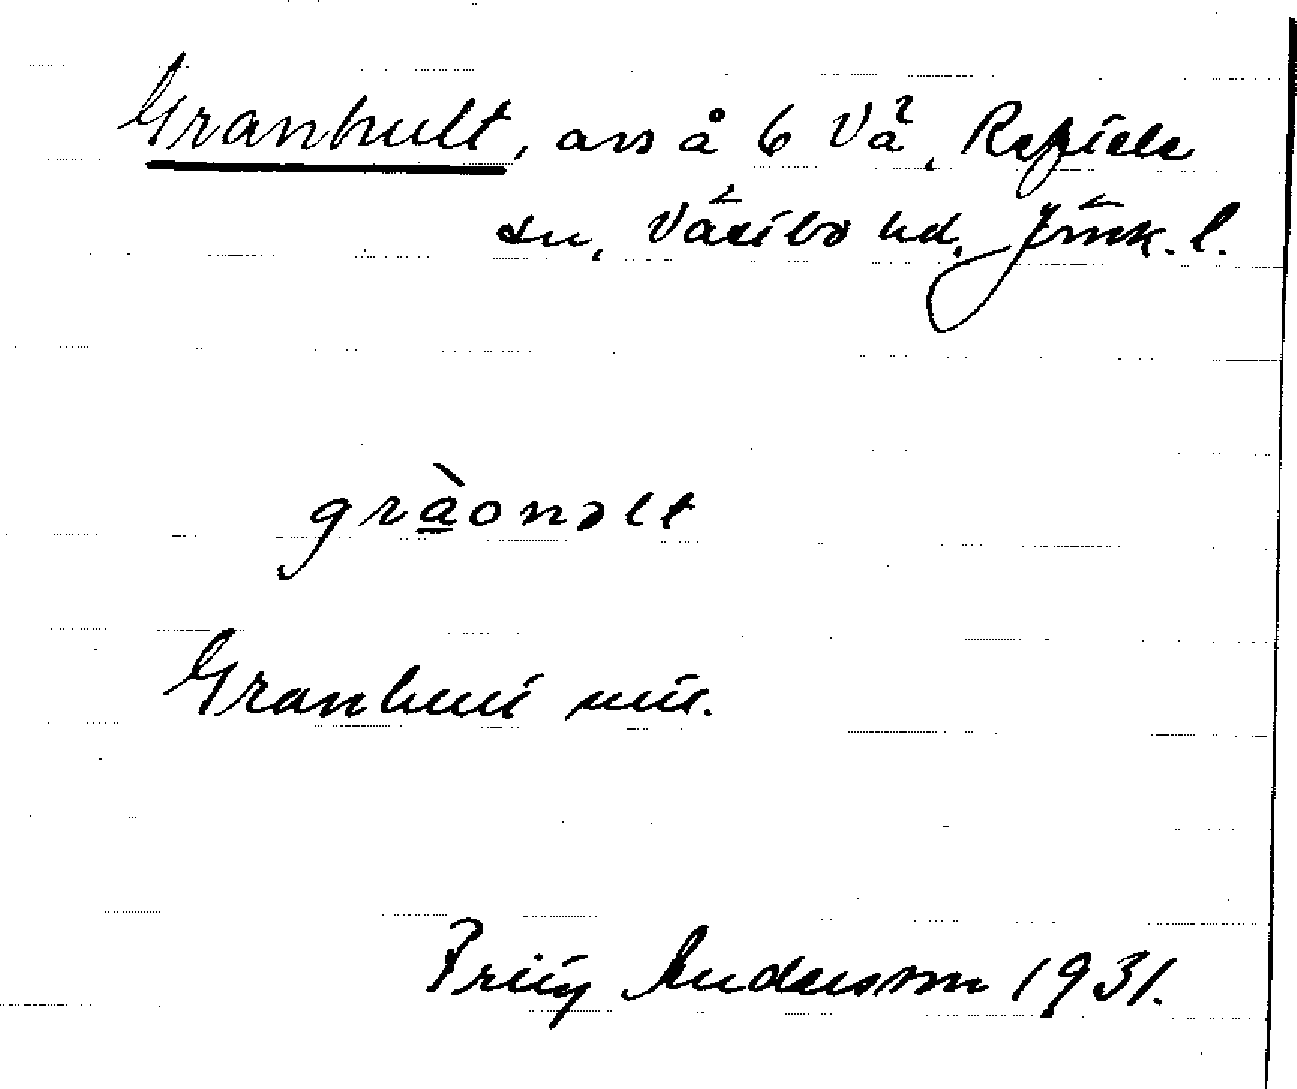 Granhult, avs å 6 Vä², Reftele
sn, Västbo hd, Jönk. l.
gràonəlt
Granhult uttr.
Fritz Andersson 1931.